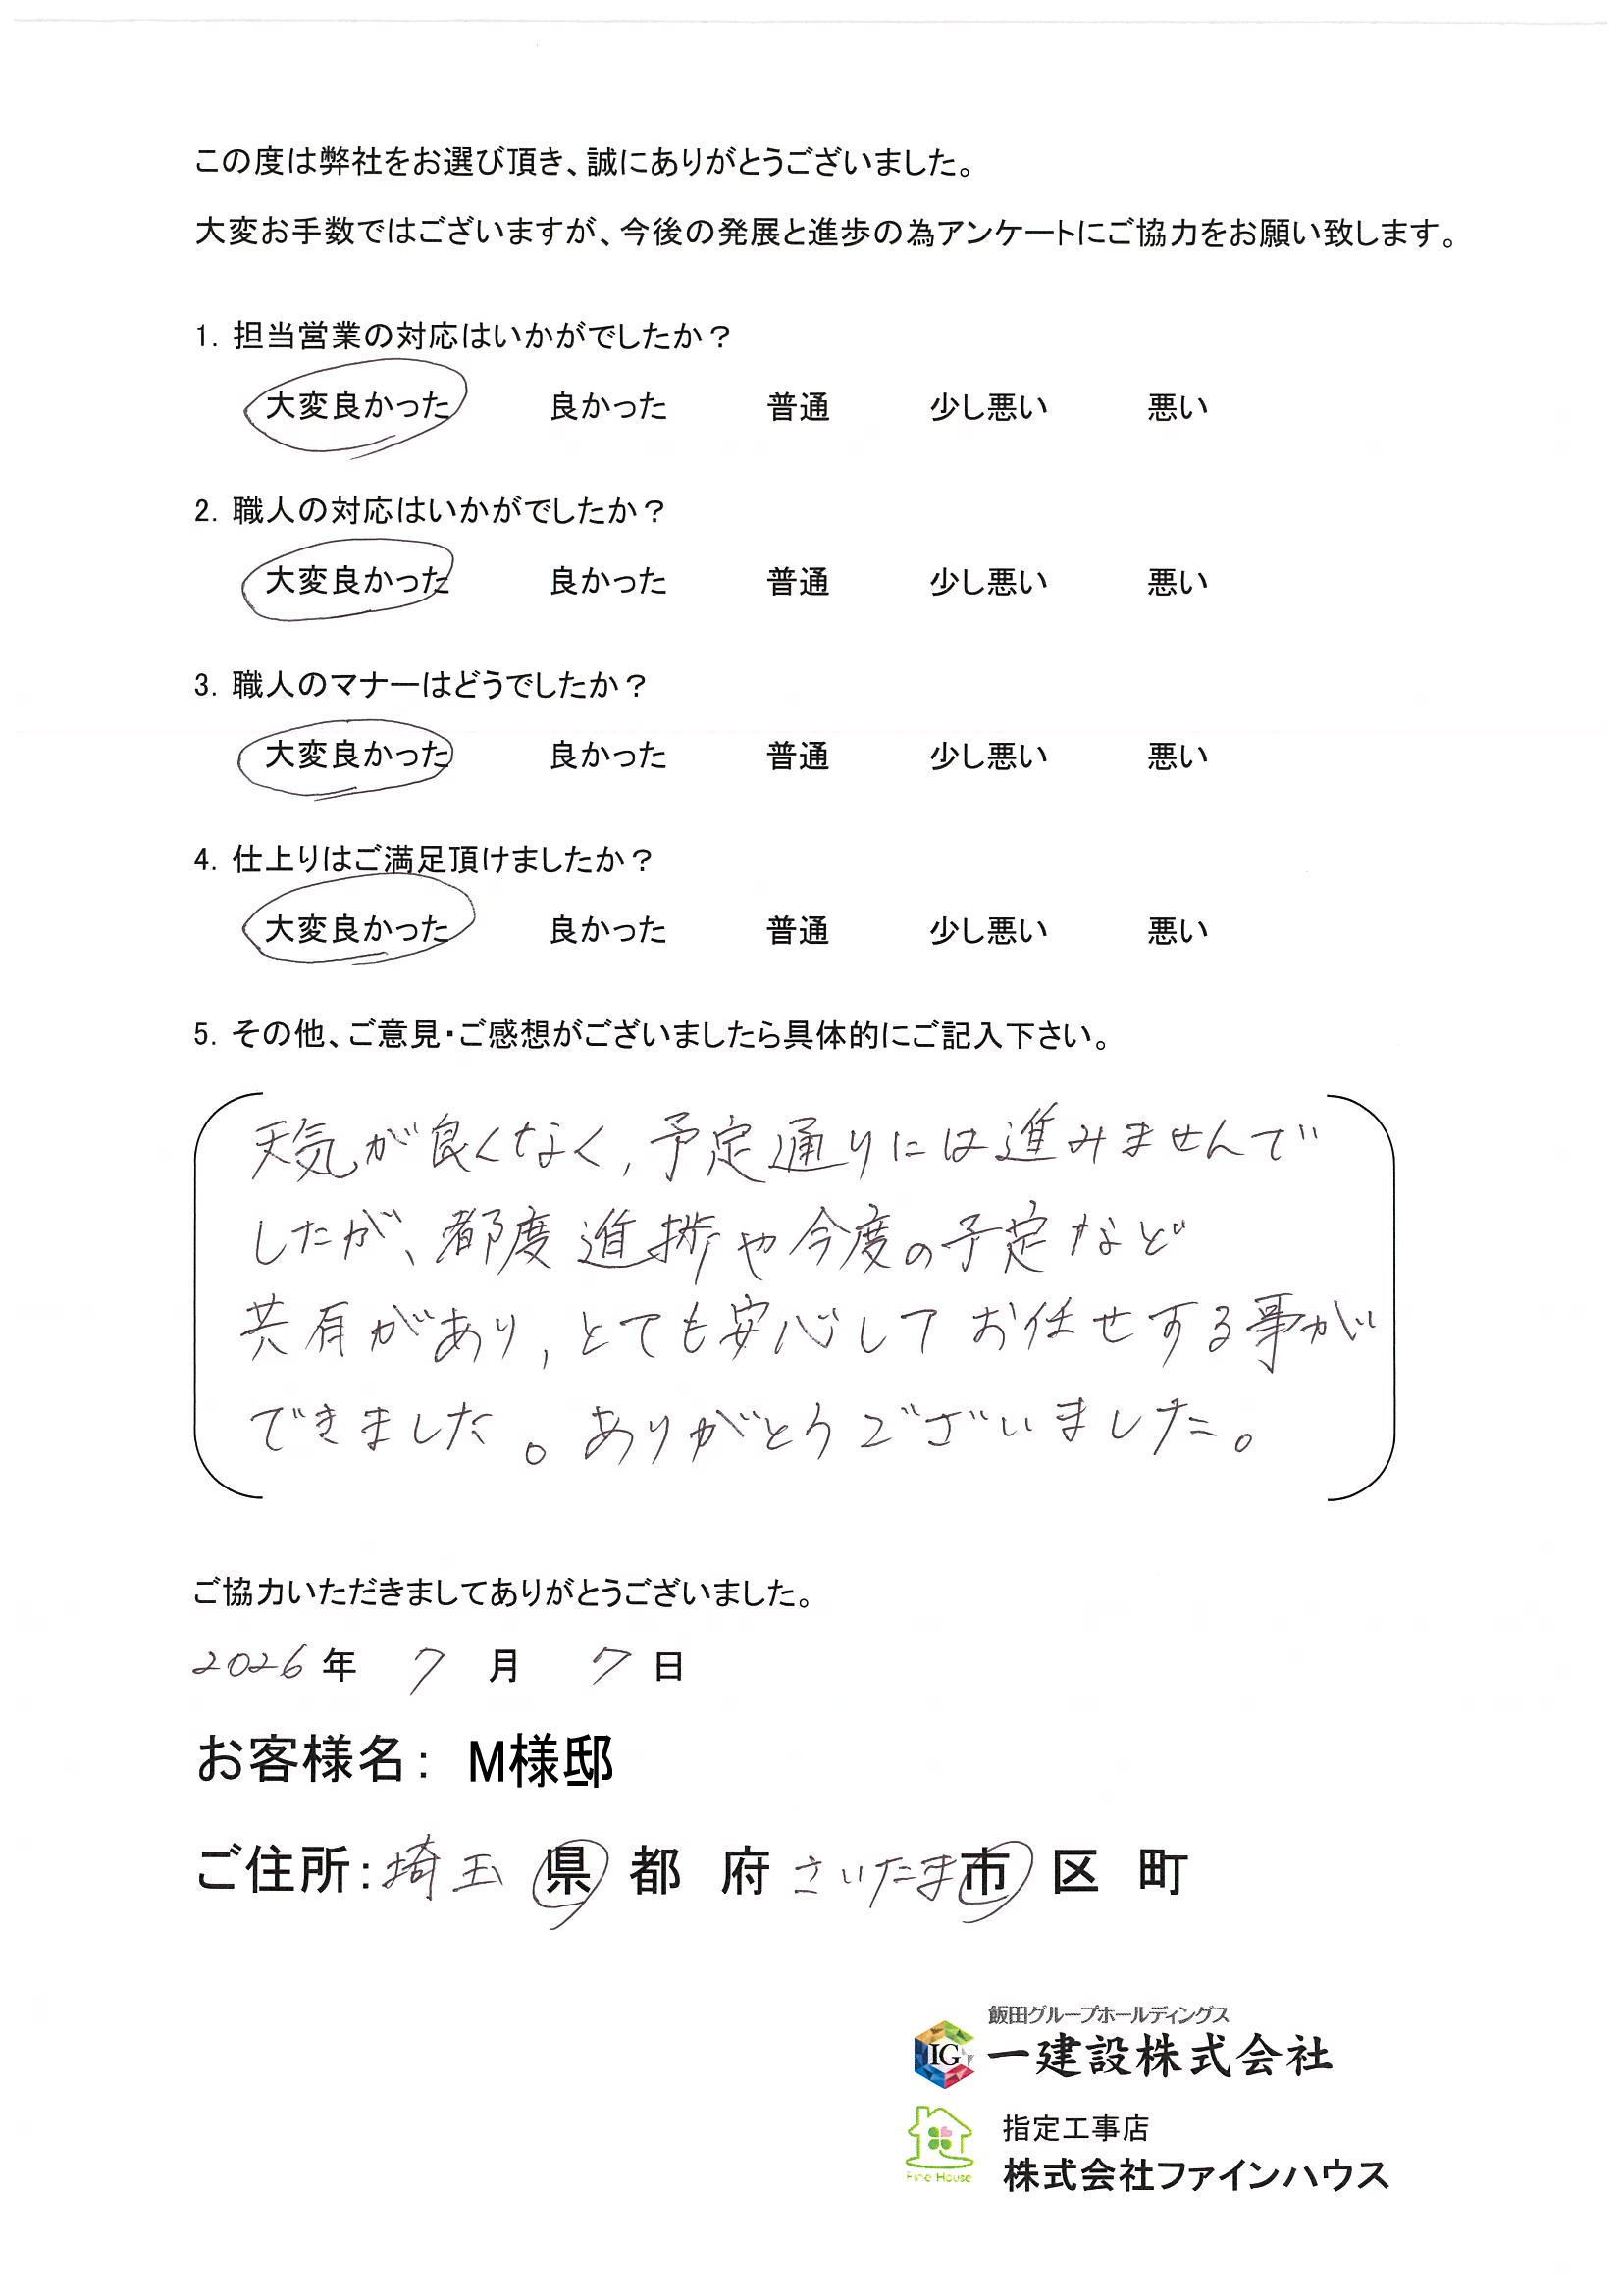 この度は弊社をお選び頂き、誠にありがとうございました。
大変お手数ではございますが、今後の発展と進歩の為アンケートにご協力をお願い致します。
1. 担当営業の対応はいかがでしたか？
大変良かった 良かった 普通 少し悪い 悪い
2. 職人の対応はいかがでしたか？
大変良かった 良かった 普通 少し悪い 悪い
3. 職人のマナーはどうでしたか？
大変良かった 良かった 普通 少し悪い 悪い
4. 仕上りはご満足頂けましたか？
大変良かった 良かった 普通 少し悪い 悪い
5. その他、ご意見・ご感想がございましたら具体的にご記入下さい。
天気が良くなく,予定通りには進みませんで
したが、都度進捗や今度の予定など
共有があり,とても安心してお任せする事が
できました。ありがとうございました。
ご協力いただきましてありがとうございました。
2026年 7月 7日
お客様名： M様邸
ご住所：埼玉 県 都 府 さいたま 市 区 町
飯田グループホールディングス
IG 一建設株式会社
指定工事店
Fine House 株式会社ファインハウス